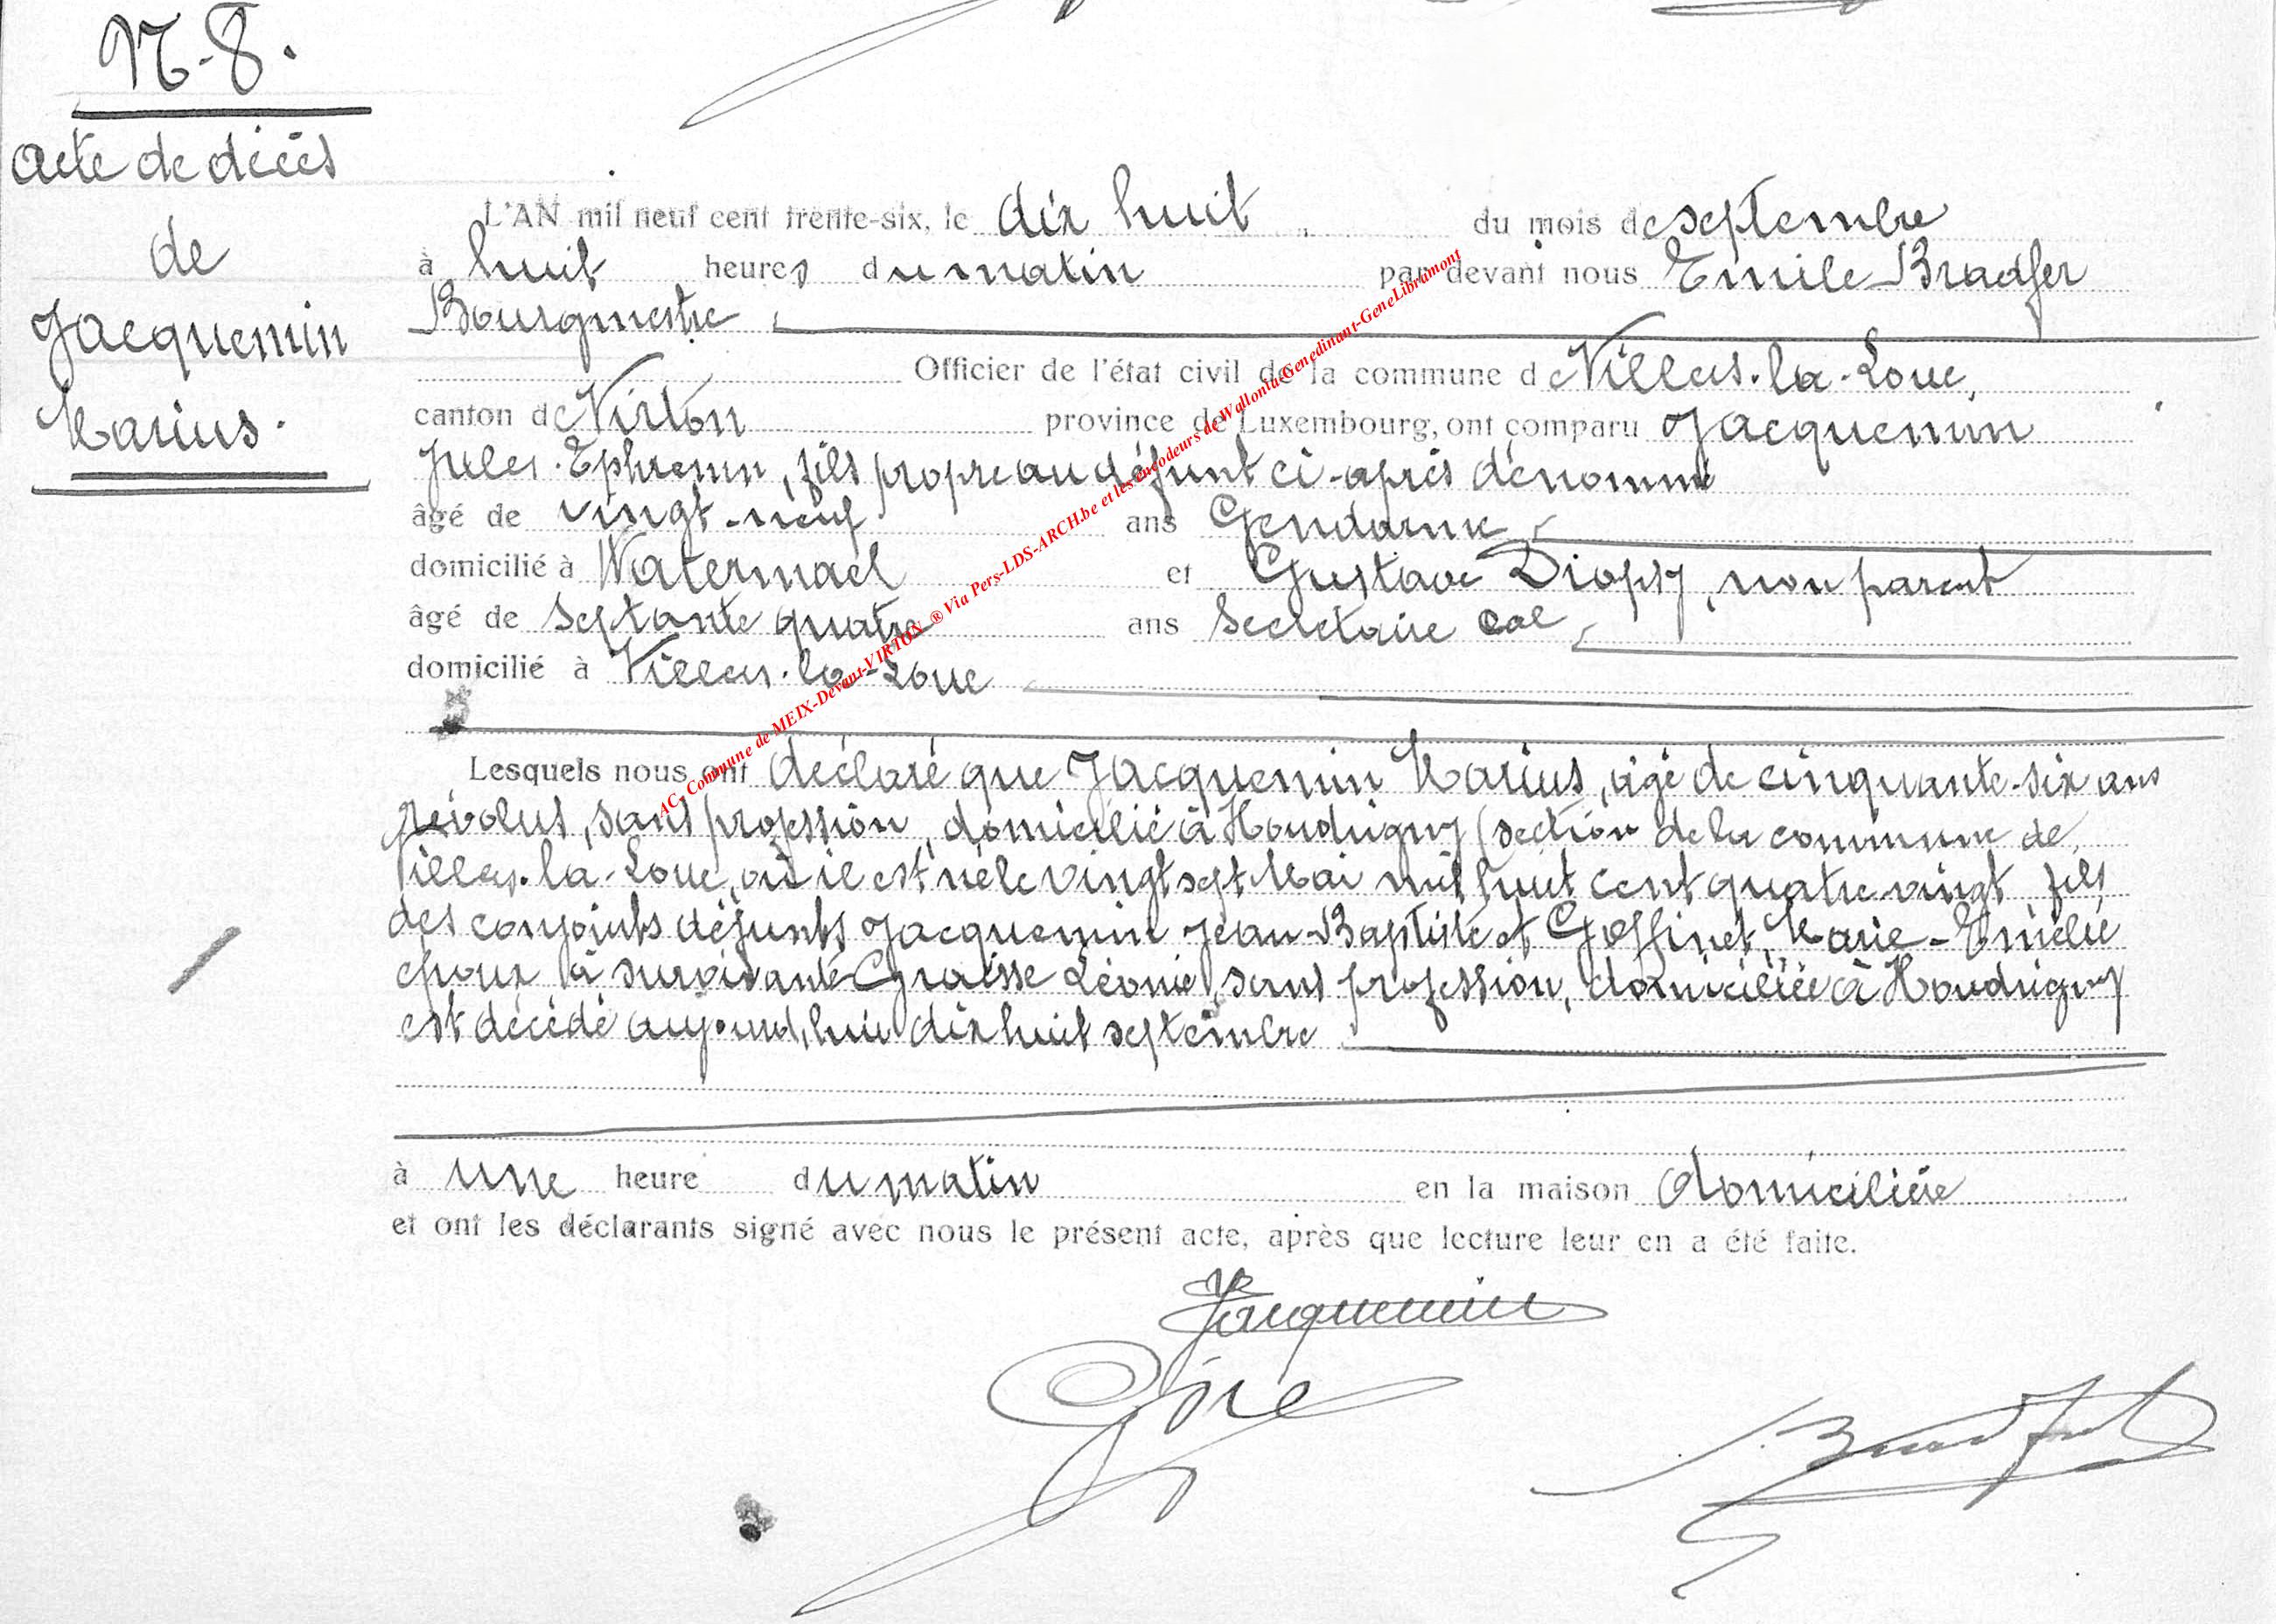 N-8.
Acte de décès
de
Jacquemin
Marius.
L'AN mil neuf cent trente-six, le dix huit du mois de septembre
à huit heures du matin par devant nous Emile Bradfer
Bourgmestre
Officier de l'état civil de la commune de Villers-la-Loue,
canton de Virton province de Luxembourg, ont comparu Jacquemin
Jules-Ephrem, fils propre au défunt ci-après dénommé
âgé de vingt-neuf ans Gendarme
domicilié à Watermael et Gustave Diopsy, non parent
âgé de septante quatre ans secrétaire cal
domicilié à Villers-la-Loue
Lesquels nous ont déclaré que Jacquemin Marius, âgé de cinquante-six ans
révolus, sans profession, domicilié à Houdrigny (section de la commune de
Villers-la-Loue, où il est né le vingt sept Mai mil huit cent quatre vingt fils
des conjoints défunts Jacquemin Jean-Baptiste et Goffinet, Marie-Emélie
époux à survivante Graisse Léonie, sans profession, domiciliée à Houdrigny
est décédé aujourd,hui dix huit septembre
à une heure du matin en la maison domicilière
et ont les déclarants signé avec nous le présent acte, après que lecture leur en a été faite.
Jacquemin
AC, Commune de MEIX-Devant-VIRTON ® Via Pers-LDS-ARCH.be et les encodeurs de Wallonia-Genedinant-GeneLibramont